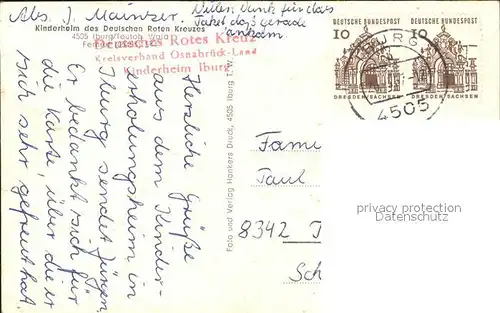 Abs. J. Mainzer
Vielen Dank für das
Paket das gerade
ankam
Kinderheim des Deutschen Roten Kreuzes
4505 Iburg/Teutob. Wald
Deutsches Rotes Kreuz
Kreisverband Osnabrück-Land
Kinderheim Iburg
Herzliche Grüße
aus dem Kinder-
erholungsheim in
Iburg sendet Jürgen.
Er bedankt sich für
die Karte, über die er
sich sehr gefreut hat.
Foto und Verlag Hankers Druck, 4505 Iburg T.W.
DEUTSCHE BUNDESPOST
10
DRESDEN/SACHSEN
DEUTSCHE BUNDESPOST
10
DRESDEN/SACHSEN
IBURG
4505
Fami
Paul
8342 T
Sch
privacy protection
Datenschutz